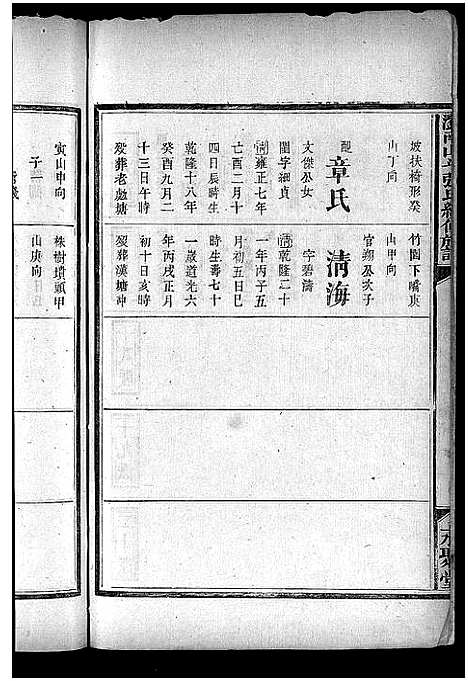 坡扶椅形癸
山丁向
配章氏
文傑公女
閨字細貞
清雍正七年
己酉二月十
四日辰時生
乾隆十八年
癸酉九月二
十三日午時
歿葬老
塘
竹園下嘴庚
山甲向
官翔公次子
清海
字碧濤
清乾隆二十
一年丙子五
月初五日巳
時生壽七十
一歲道光六
年丙戌正月
初十日亥時
歿葬漢塘冲
寅山申向
子一
株樹墳頭甲
山庚向